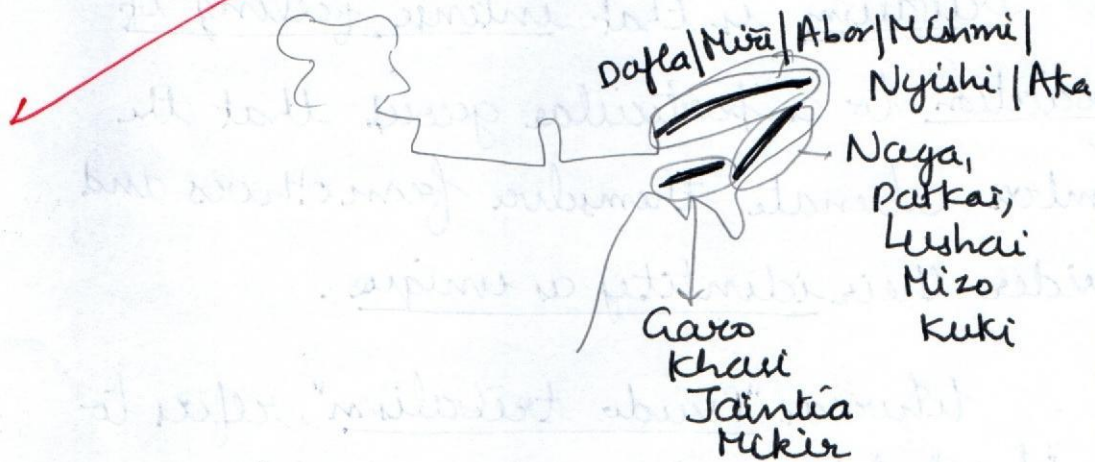 Dafla/Miri/Abor/Mishmi/
Nyishi/Aka
Naga,
Patkai,
Lushai
Mizo
Kuki
Garo
Khasi
Jaintia
Mikir